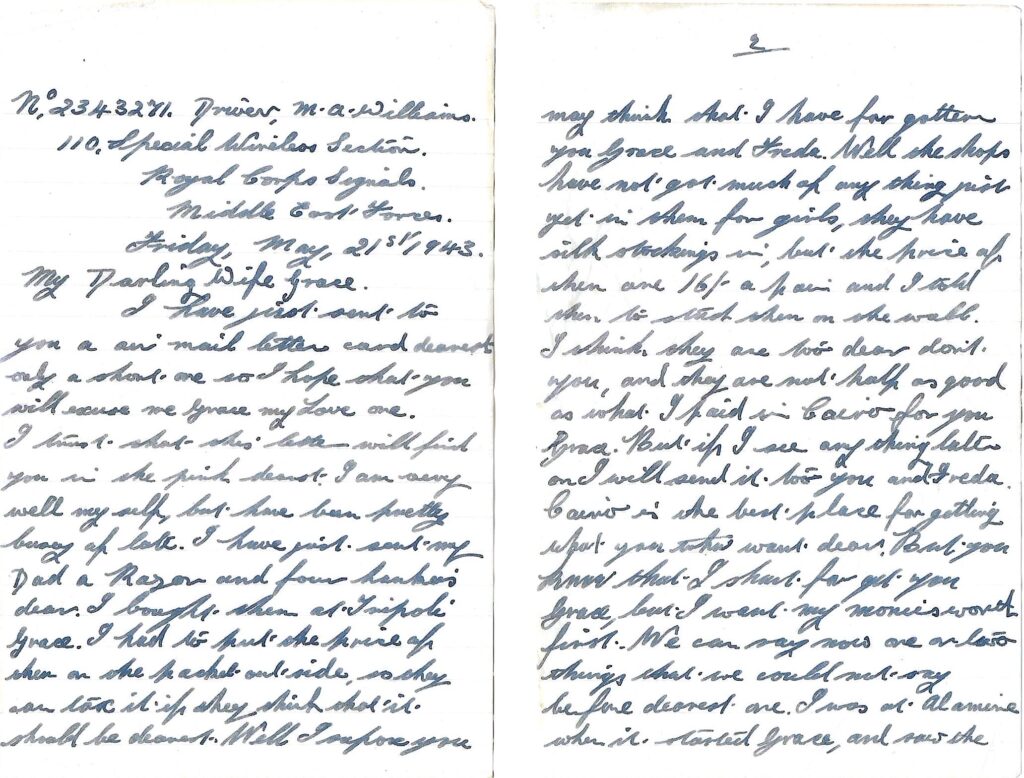 No, 2343271. Driver, M.A. Williams.
110, Special Wireless Section.
Royal Corps Signals.
Middle East Forces.
Friday, May, 21st/1943.
My Darling Wife Grace.
I have just sent to
you a air mail letter card dearest
only a short one so I hope that you
will excuse me Grace my Love one.
I trust that this letter will find
you in the pink dearest. I am very
well my self, but have been pretty
busy of late. I have just sent my
Dad a Razor and four hankies
dear. I bought them at Tripoli
Grace. I had to put the price of
them on the packet out side, so they
can tax it if they think that it
should be dearest. Well I supose you
2
may think that I have for gotten
you Grace and Freda. Well the shops
have not got much of any thing just
yet in them for girls, they have
silk stockings in, but the price of
them are 16/- a pair and I told
them to stick them on the wall.
I think they are too dear don't
you, and they are not half as good
as what I paid in Cairo for you
Grace. But if I see any thing later
on I will send it too you and Freda.
Cairo is the best place for getting
what you want dear. But you
know that I shant for get you
Grace, but I want my monies worth
first. We can say now one or two
things that we could not say
be fore dearest one. I was at Alamine
when it started Grace, and saw the